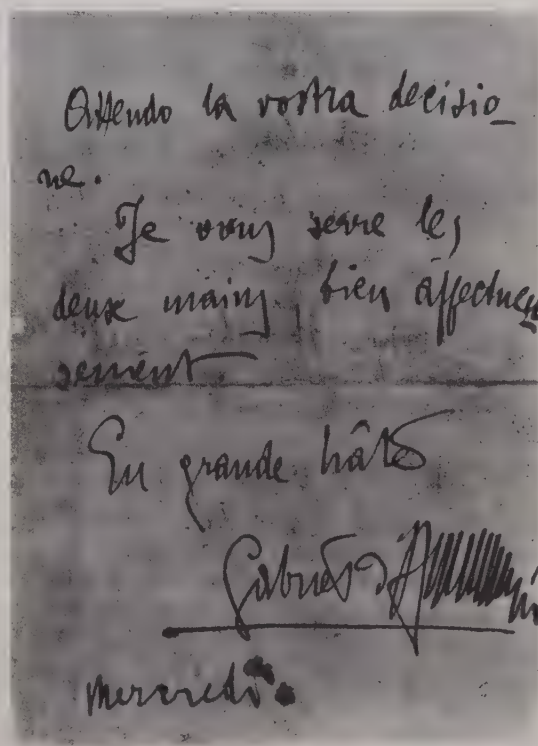 Attendo la vostra decisio_
ne.
Je vous serre les
deux mains, bien affectueu_
sement.
En grande hâte
Gabriele d'Annunzio
mercredi.